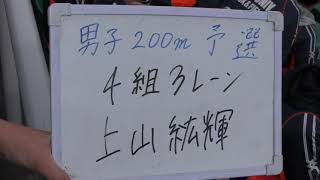 男子 200m 予選
4組3レーン
上山 紘輝